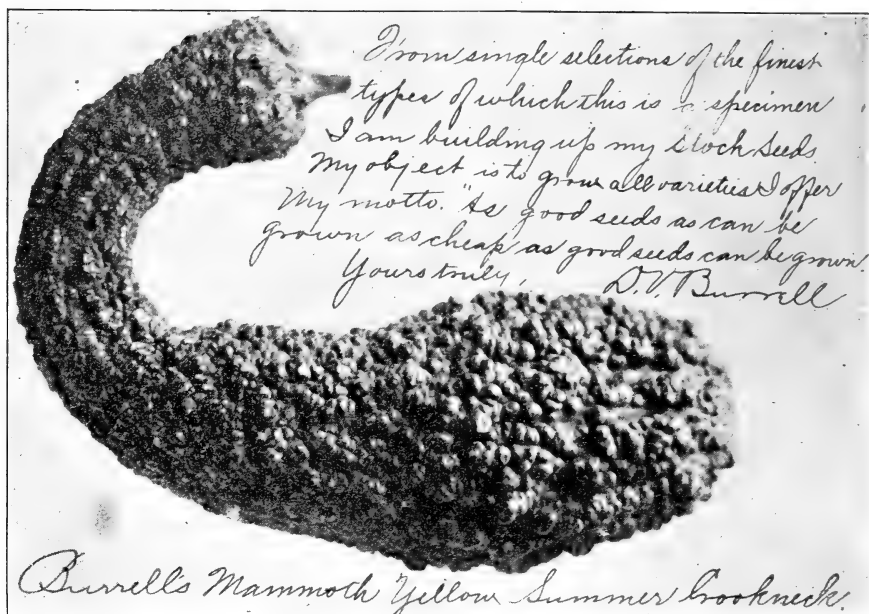 From single selections of the finest
types of which this is a specimen
I am building up my stock seeds.
My object is to grow all varieties I offer
My motto. "As good seeds as can be
grown as cheap as good seeds can be grown.
Yours truly, D.V. Burrell
Burrell's Mammoth Yellow Summer Crookneck